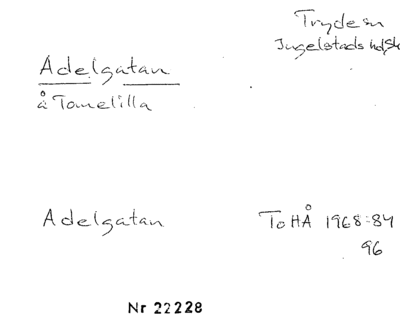 Tryde sn
Ingelstads hd, Sk
Adelgatan
å Tomelilla
Adelgatan
ToHÅ 1968: 84
96
Nr 22228